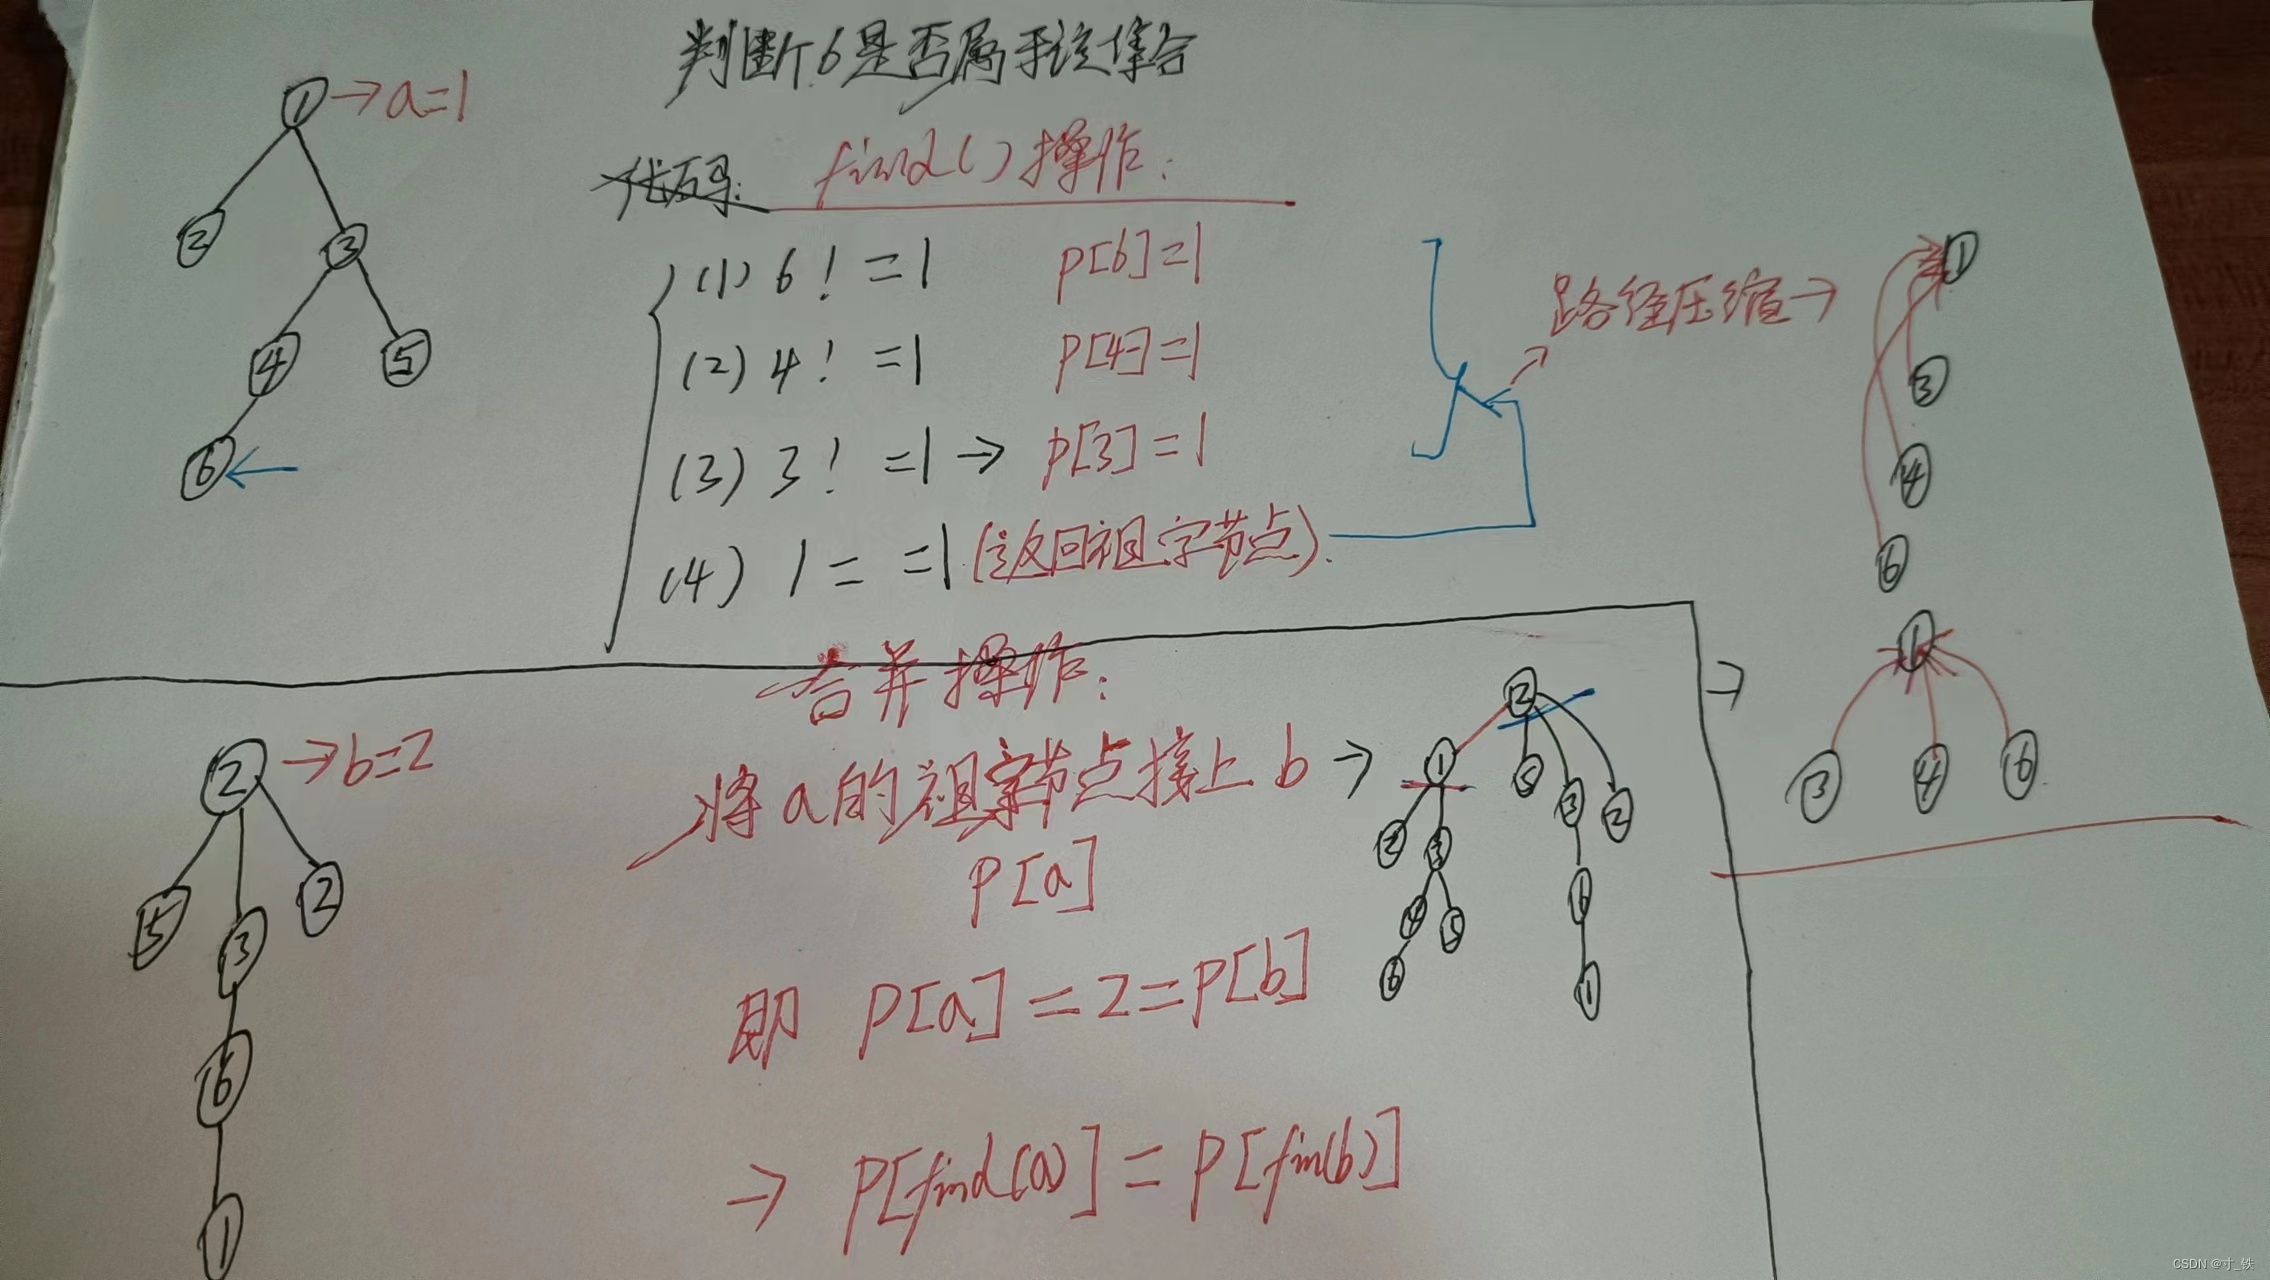 判断6是否属于该集合
①→a=1
②
③
④
⑤
⑥
代码: find()操作:
(1) 6! =1 p[6]=1
(2) 4! =1 p[4]=1
(3) 3! =1 → p[3]=1
(4) 1= =1 (返回祖宗节点).
路径压缩→
①
③
④
⑥
→
①
③
④
⑥
合并操作:
将a的祖宗节点接上b→
p[a]
即 p[a]=2=p[b]
→ p[find(a)]=p[fin(b)]
②→b=2
⑤
③
②
⑥
①
②
①
⑤
③
②
②
③
⑥
④
⑤
⑥
①
CSDN @寸_铁